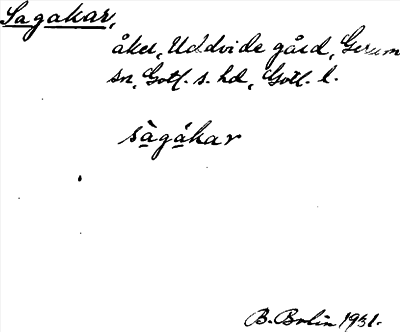 Sagakar,
åker, Uddvide gård, Gerum
sn, Gotl. s. hd, Gotl. l.
sàgákar
B. Bolin 1931.